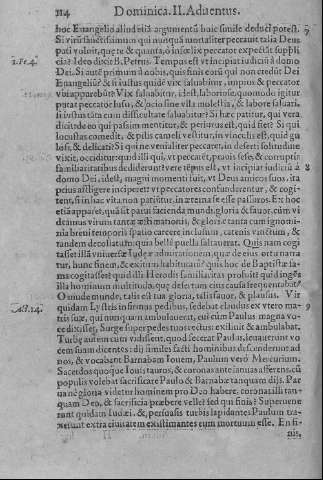 314 Dominica. II. Aduentus.
hoc Euangelio aliud etiã argumentũ huic simile deduci potest. 7
Si viri sanctissimi
pati voluit, quę te & quanta, ò infœlix peccator expectãt suppli
1.Pe.4. cia? Ideo dixit B. Petrus. Tempus est vt incipiat iudiciũ à domo
Dei. Si autẽ primum à nobis, quis finis eorũ qui non credũt Dei
Euangelio? & si iustus quidẽ vix saluabitur, impius & peccator
vbi apparebũt? Vix saluabitur, id est, laboriose, quomodo igitur
putat peccator lusu, & ocio sine vlla molestia, & labore saluari,
si iustus tãta cum difficultate saluabitur? Si hæc patitur, qui vera
dicit
locustas comedit, & pilis cameli vestitur, in vinculis est, quid
Si qui ne venialiter peccaret, in deserti solitudine
vixit, occiditur:
familiaritatibus dediderunt? vere tẽpus est, vt incipiat iudiciũ à 8
domo Dei, id est, magni momenti fuit, vt Deus amicos suos, ita
prius affligere inciperet vt peccatores confunderentur, & cogi-
tent, si in hac vita non patiũtur, in æterna se esse passuros. Ex hoc
etiã apparet, quã sit parui facienda mundi gloria & fauor, cum vi
deamus virum tantæ æstimationis, & gloriæ tanta cum ignomi-
nia breui temporis spatio carcere inclusum, catenis vinctum, &
tandem decollatum: quia bellè puella saltauerat. Quis nam cogi
tasset
tur, hunc finem, & exitum habiturã?
mas cogitasset
illa hominum multitudo, quę defectum eius causa frequentabat?
O munde munde, talis est tua gloria, talis fauor, & plausus. Vir
Act.14. quidam Lystris infirmus pedibus, sedebat claudus ex vtero ma- 9
tris suæ, qui nunquam ambulauerat, cui cùm Paulus magna vo-
ce dixisset, Surge super pedes tuos rectus: exiliuit & ambulabat.
Turbę autem cum vidissent, quod fecerat Paulus, leuauerunt vo
cem suam dicentes: dij similes facti hominibus descenderunt ad
nos, & vocabant Barnabam Iouem, Paulum verò Mercurium.
Sacerdos quoque Iouis tauros, & coronas ante ianuas afferens, cũ
populis volebat sacrificare Paulo & Barnabæ tanquam dijs. Par
ua nè gloria videtur hominem pro Deo habere, coronas illi tan-
quam Deo, & sacrificia præbere velle? sed qui finis? Superuene
runt quidam Iudæi, &, persuasis turbis lapidantes Paulum tra-
xerunt extra ciuitatem existimantes eum mortuum esse. En fi-
nis,